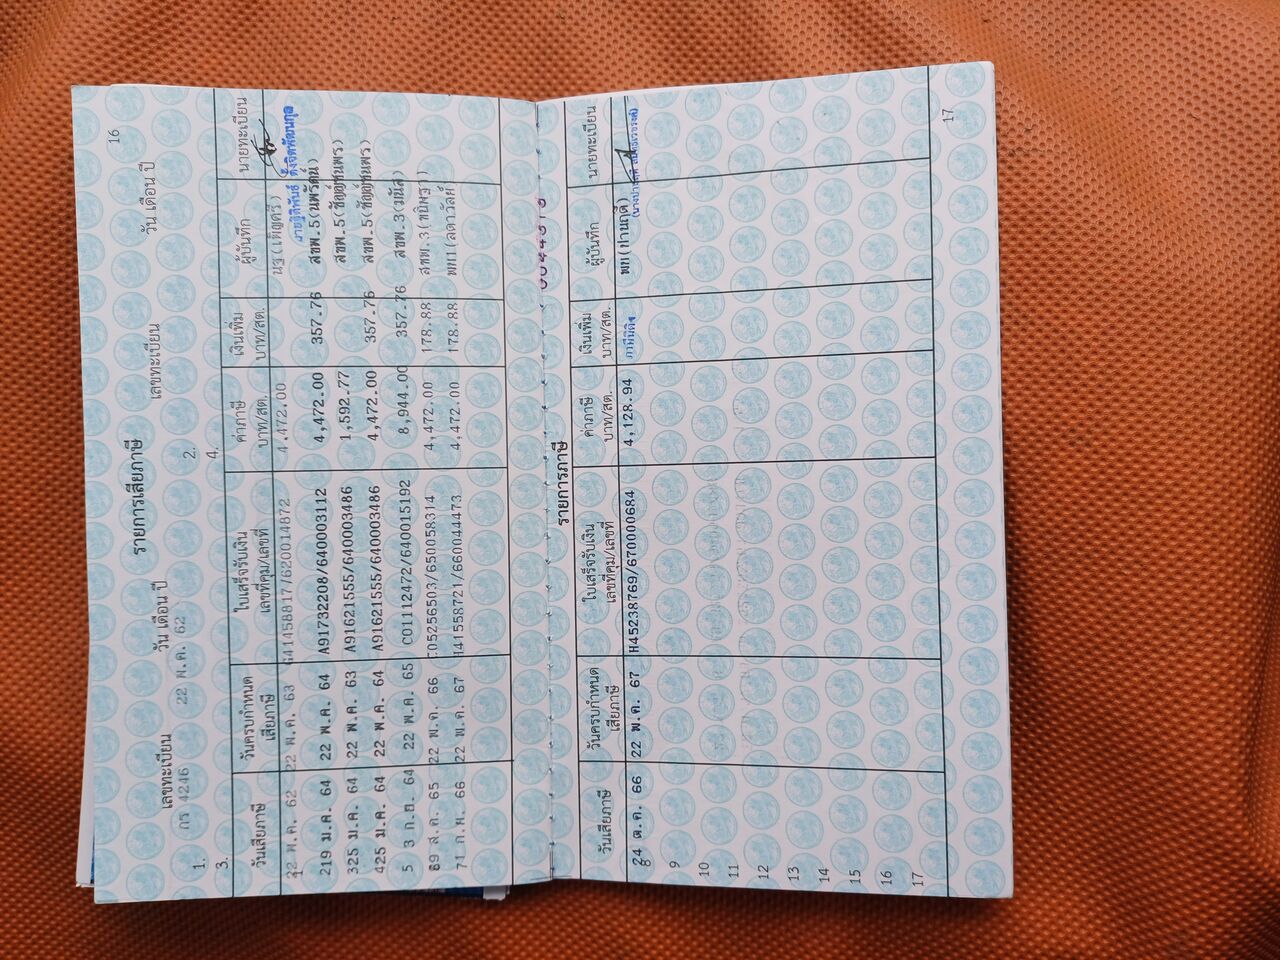 16
รายการเสียภาษี
เลขทะเบียน วัน เดือน ปี เลขทะเบียน วัน เดือน ปี
1. กร 4246 22 พ.ค. 62 2.
3. 4.
วันเสียภาษี วันครบกำหนดเสียภาษี ใบเสร็จรับเงิน เลขที่คุม/เลขที่ ค่าภาษี บาท/สต. เงินเพิ่ม บาท/สต. ผู้บันทึก นายทะเบียน
22 พ.ค. 62 22 พ.ค. 63 41458817/620014872 4,472.00
219 ม.ค. 64 22 พ.ค. 64 A91732208/640003112 4,472.00 357.76 สขพ.5(นพรัตน์)
325 ม.ค. 64 22 พ.ค. 63 A91621555/640003486 1,592.77 สขพ.5(ชัญญ์ชนพร)
425 ม.ค. 64 22 พ.ค. 64 A91621555/640003486 4,472.00 357.76 สขพ.5(ชัญญ์ชนพร)
5 3 ก.ย. 64 22 พ.ค. 65 C01112472/640015192 8,944.00 357.76 สขพ.3(มนัส)
9 ส.ค. 65 22 พ.ค. 66 C05256503/650058314 4,472.00 178.88 สขพ.3
71 ก.พ. 66 22 พ.ค. 67 H41558721/660044473 4,472.00 178.88 พท1(ลดาวัลย์
รายการภาษี
วันเสียภาษี วันครบกำหนดเสียภาษี ใบเสร็จรับเงิน เลขที่คุม/เลขที่ ค่าภาษี บาท/สต. เงินเพิ่ม บาท/สต. ผู้บันทึก นายทะเบียน
24 ต.ค. 66 22 พ.ค. 67 H45238769/670000684 4,128.94 พท(ปานฤดี)
9
10
11
12
13
14
15
16
17
17